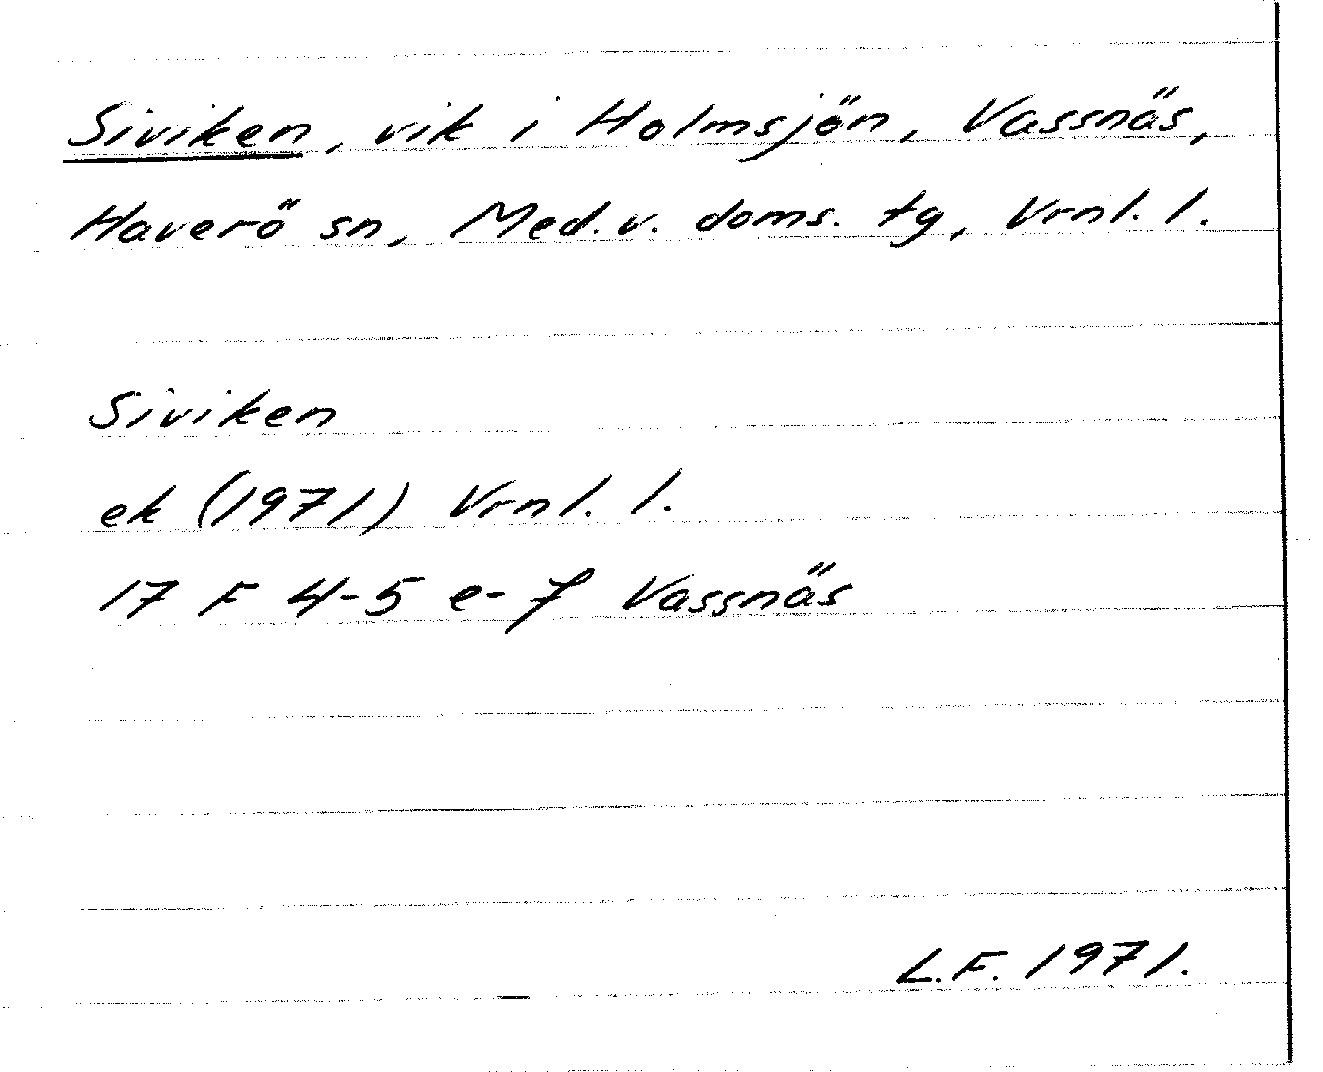 Siviken, vik i Holmsjön, Vassnäs,
Haverö sn, Med.v. doms. tg, Vrnl. l.
Siviken
ek (1971) Vrnl. l.
17 F 4-5 e-f Vassnäs
L.F. 1971.